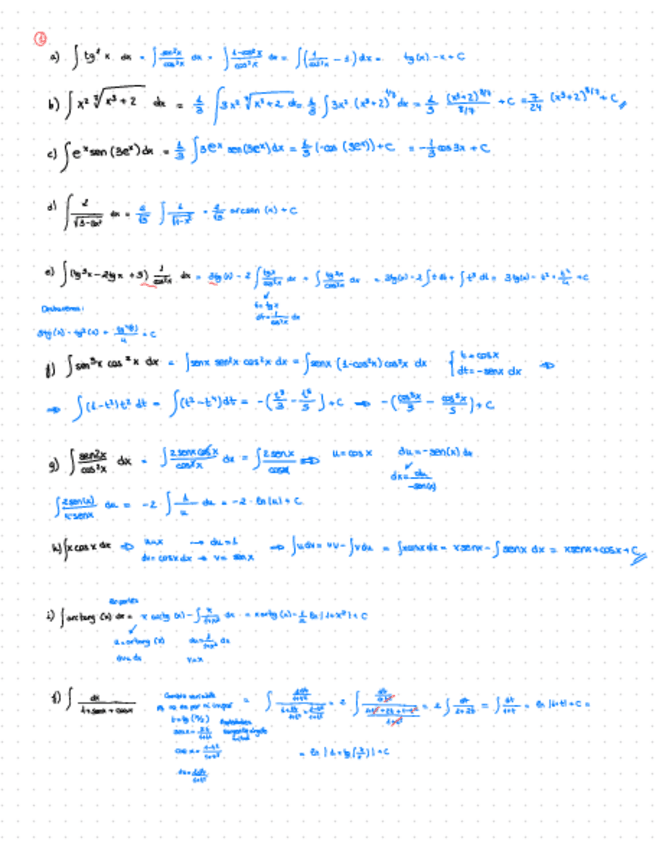 1
a) ∫ tg² x dx = ∫ sen²x/cos²x dx = ∫ (1-cos²x)/cos²x dx = ∫ (1/cos²x - 1) dx = tg(x) - x + C
b) ∫ x² ⁷√(x³+2) dx = 1/3 ∫ 3x² ⁷√(x³+2) dx = 1/3 ∫ 3x² (x³+2)^(1/7) dx = 1/3 (x³+2)^(8/7)/(8/7) + C = 7/24 (x³+2)^(8/7) + C
c) ∫ eˣ sen(3eˣ) dx = 1/3 ∫ 3eˣ sen(3eˣ) dx = 1/3 (-cos(3eˣ)) + C = -1/3 cos 3x + C
d) ∫ 2/√(3-3x²) dx = 2/√3 ∫ 1/√(1-x²) = 2/√3 arcsen(x) + C
e) ∫ (tg³x - 2tgx + 3) 1/cos²x dx = 3tg(x) - 2 ∫ tgx/cos²x dx + ∫ tg³x/cos²x dx = 3tg(x) - 2∫t dt + ∫t³ dt = 3tg(x) - t² + t⁴/4 + C
t = tg x
dt = 1/cos²x dx
3tg(x) - tg²(x) + tg⁴(x)/4 + C
f) ∫ sen³x cos²x dx = ∫ senx sen²x cos²x dx = ∫ senx (1-cos²x) cos²x dx { t = cosx ⇒
dt = -senx dx
⇒ ∫ (1-t²) t² dt = ∫ (t²-t⁴) dt = -(t³/3 - t⁵/5) + C ⇒ -(cos³x/3 - cos⁵x/5) + C
g) ∫ sen2x/cos²x dx = ∫ 2senx cosx/cos²x dx = ∫ 2senx/cosx ⇒ u = cos x du = -sen(x) dx
dx = du/-sen(x)
∫ 2sen(x)/u·senx du = -2 ∫ 1/u du = -2 · ln(u) + C
h) ∫ x cosx dx ⇒ u=x → du=1 ⇒ ∫udv = uv - ∫vdu = ∫xcosx dx = xsenx - ∫senx dx = xsenx + cosx + C
dv = cosx dx → v = senx
i) ∫ arctang(x) dx = x arctg(x) - ∫ x/(1+x²) dx = x arctg(x) - 1/2 ln|1+x²| + C
u = arctang(x) du = 1/(1+x²) dx
dv = dx v = x
j) ∫ dx/(1+senx+cosx)
Cambio variable
t = tg(x/2)
senx = 2t/(1+t²)
cos x = (1-t²)/(1+t²)
dx = 2dt/(1+t²)
= 2 ∫ dt/(2+2t) = ∫ dt/(1+t) = ln|1+t| + C =
= ln |1 + tg(x/2)| + C